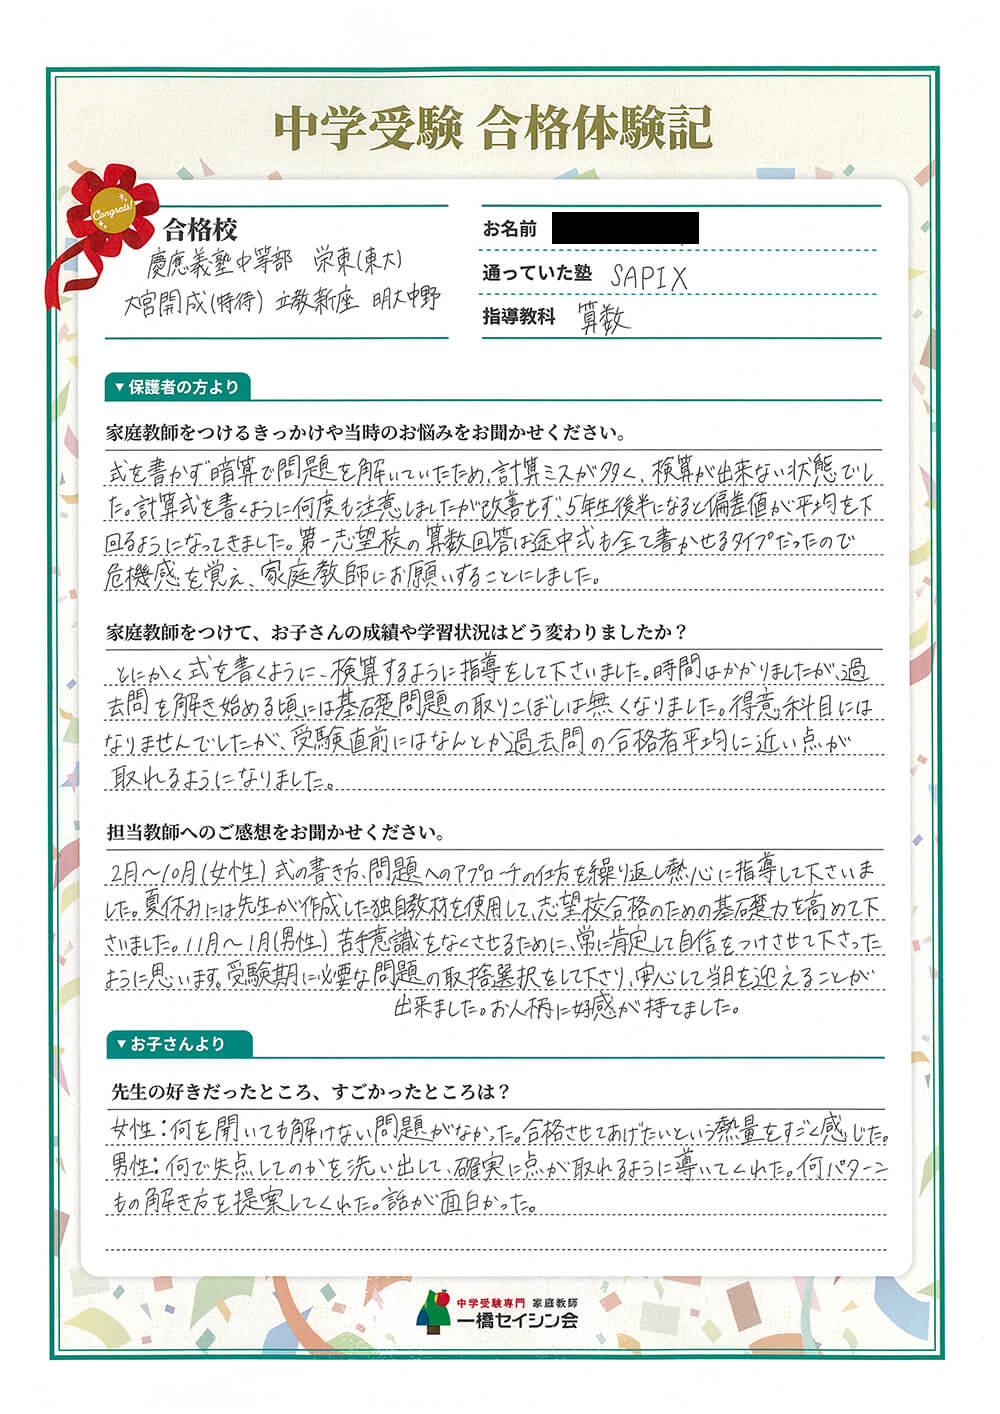 中学受験 合格体験記
Congrats!
合格校
慶應義塾中等部 栄東(東大)
大宮開成(特待) 立教新座 明大中野
お名前
通っていた塾 SAPIX
指導教科 算数
▼保護者の方より
家庭教師をつけるきっかけや当時のお悩みをお聞かせください。
式を書かず暗算で問題を解いていたため、計算ミスが多く、検算が出来ない状態でし
た。計算式を書くように何度も注意しましたが改善せず、5年生後半になると偏差値が平均を下
回るようになってきました。第一志望校の算数回答は途中式も全て書かせるタイプだったので
危機感を覚え、家庭教師にお願いすることにしました。
家庭教師をつけて、お子さんの成績や学習状況はどう変わりましたか？
とにかく式を書くように、検算するように指導をして下さいました。時間はかかりましたが、過
去問を解き始める頃には基礎問題の取りこぼしは無くなりました。得意科目には
なりませんでしたが、受験直前にはなんとか過去問の合格者平均に近い点が
取れるようになりました。
担当教師へのご感想をお聞かせください。
2月～10月(女性) 式の書き方、問題へのアプローチの仕方を繰り返し熱心に指導して下さいま
した。夏休みには先生が作成した独自教材を使用して、志望校合格のための基礎力を高めて下
さいました。11月～1月(男性) 苦手意識をなくさせるために、常に肯定して自信をつけさせて下さった
ように思います。受験期に必要な問題の取捨選択をして下さり、安心して当日を迎えることが
出来ました。お人柄に好感が持てました。
▼お子さんより
先生の好きだったところ、すごかったところは？
女性：何を聞いても解けない問題がなかった。合格させてあげたいという熱量をすごく感じた。
男性：何で失点してのかを洗い出して、確実に点が取れるように導いてくれた。何パターン
もの解き方を提案してくれた。話が面白かった。
中学受験専門 家庭教師
一橋セイシン会